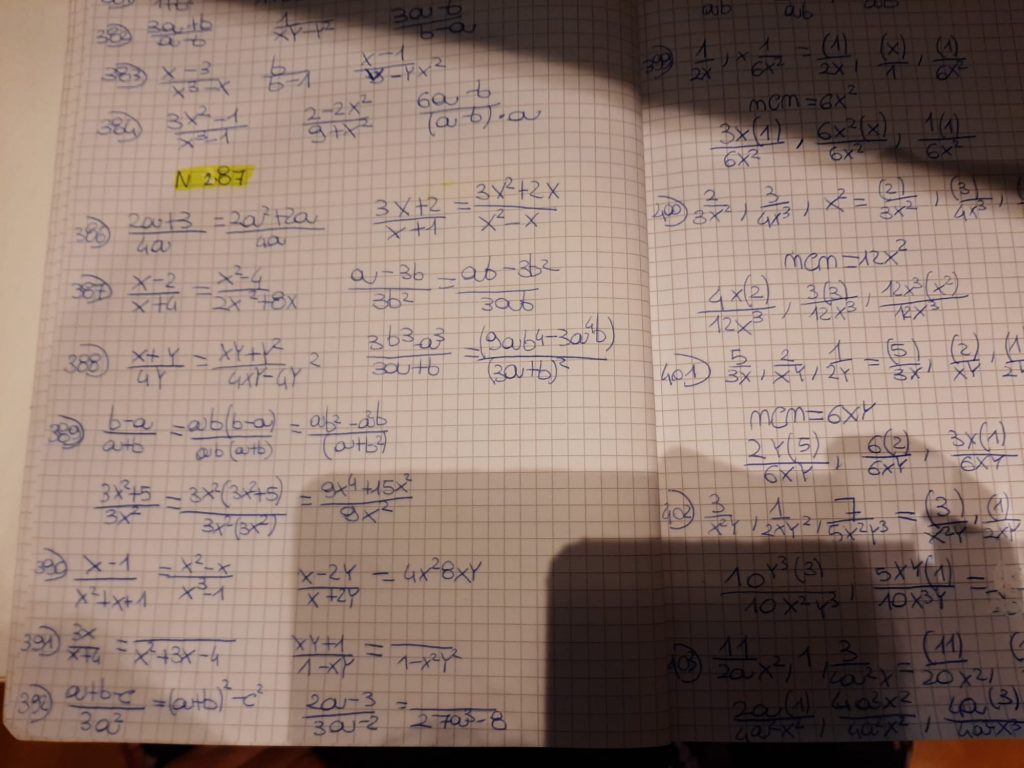 382) (3a+b)/(a-b) 1/(xy-y²) (3a-b)/(b-a)
383) (x-3)/(x³-x) b/(b-1) (x-1)/(x-4x²)
384) (3x²-1)/(x³-1) (2-2x²)/(9+x²) (6a-b)/((a-b)·a)
N 287
386) (2a+3)/4a = (2a²+2a)/4a (3x+2)/(x+1) = (3x²+2x)/(x²-x)
387) (x-2)/(x+4) = (x²-4)/(2x²+8x) (a-3b)/3b² = (ab-3b²)/3ab
388) (x+y)/4y = (xy+y²)/(4xy-4y²) 2 (3b³-a³)/(3a+b) = (9ab⁴-3a⁴b)/(3a+b)²
389) (b-a)/(a+b) = ab(b-a)/ab(a+b) = (ab²-a²b)/(a+b²)
(3x²+5)/3x² = 3x²(3x²+5)/3x²(3x²) = (9x⁴+15x²)/9x²
390) (x-1)/(x²+x+1) = (x²-x)/(x³-1) (x-2y)/(x+2y) = 4x²8xy
391) 3x/(x+4) = /(x²+3x-4) (xy+1)/(1-xy) = /(1-x²y²)
392) (a+b-c)/3a² = (a+b)²-c² (2a-3)/(3a-2) = /(27a³-8)
399) 1/2x, x 1/6x² = (1)/2x, (x)/1, (1)/6x²
mcm = 6x²
3x(1)/6x², 6x²(x)/6x², 1(1)/6x²
400) 2/3x², 3/4x³, x² = (2)/3x², (3)/4x³,
mcm = 12x²
4x(2)/12x³, 3(3)/12x³, 12x³(x²)/12x³
401) 5/3x, 2/xy, 1/2y = (5)/3x, (2)/xy, (1
mcm = 6xy
2y(5)/6xy, 6(2)/6xy, 3x(1)/6xy
402) 3/x²y, 1/2xy², 7/5x²y³ = (3)/x²y, (1)
10y³(3)/10x²y³, 5xy(1)/10x³y =
403) 11/2ax², 1, 3/4a²x = (11)/20x²,
2a(1)/4a²x², 4a²x²/4a²x², 4a(3)